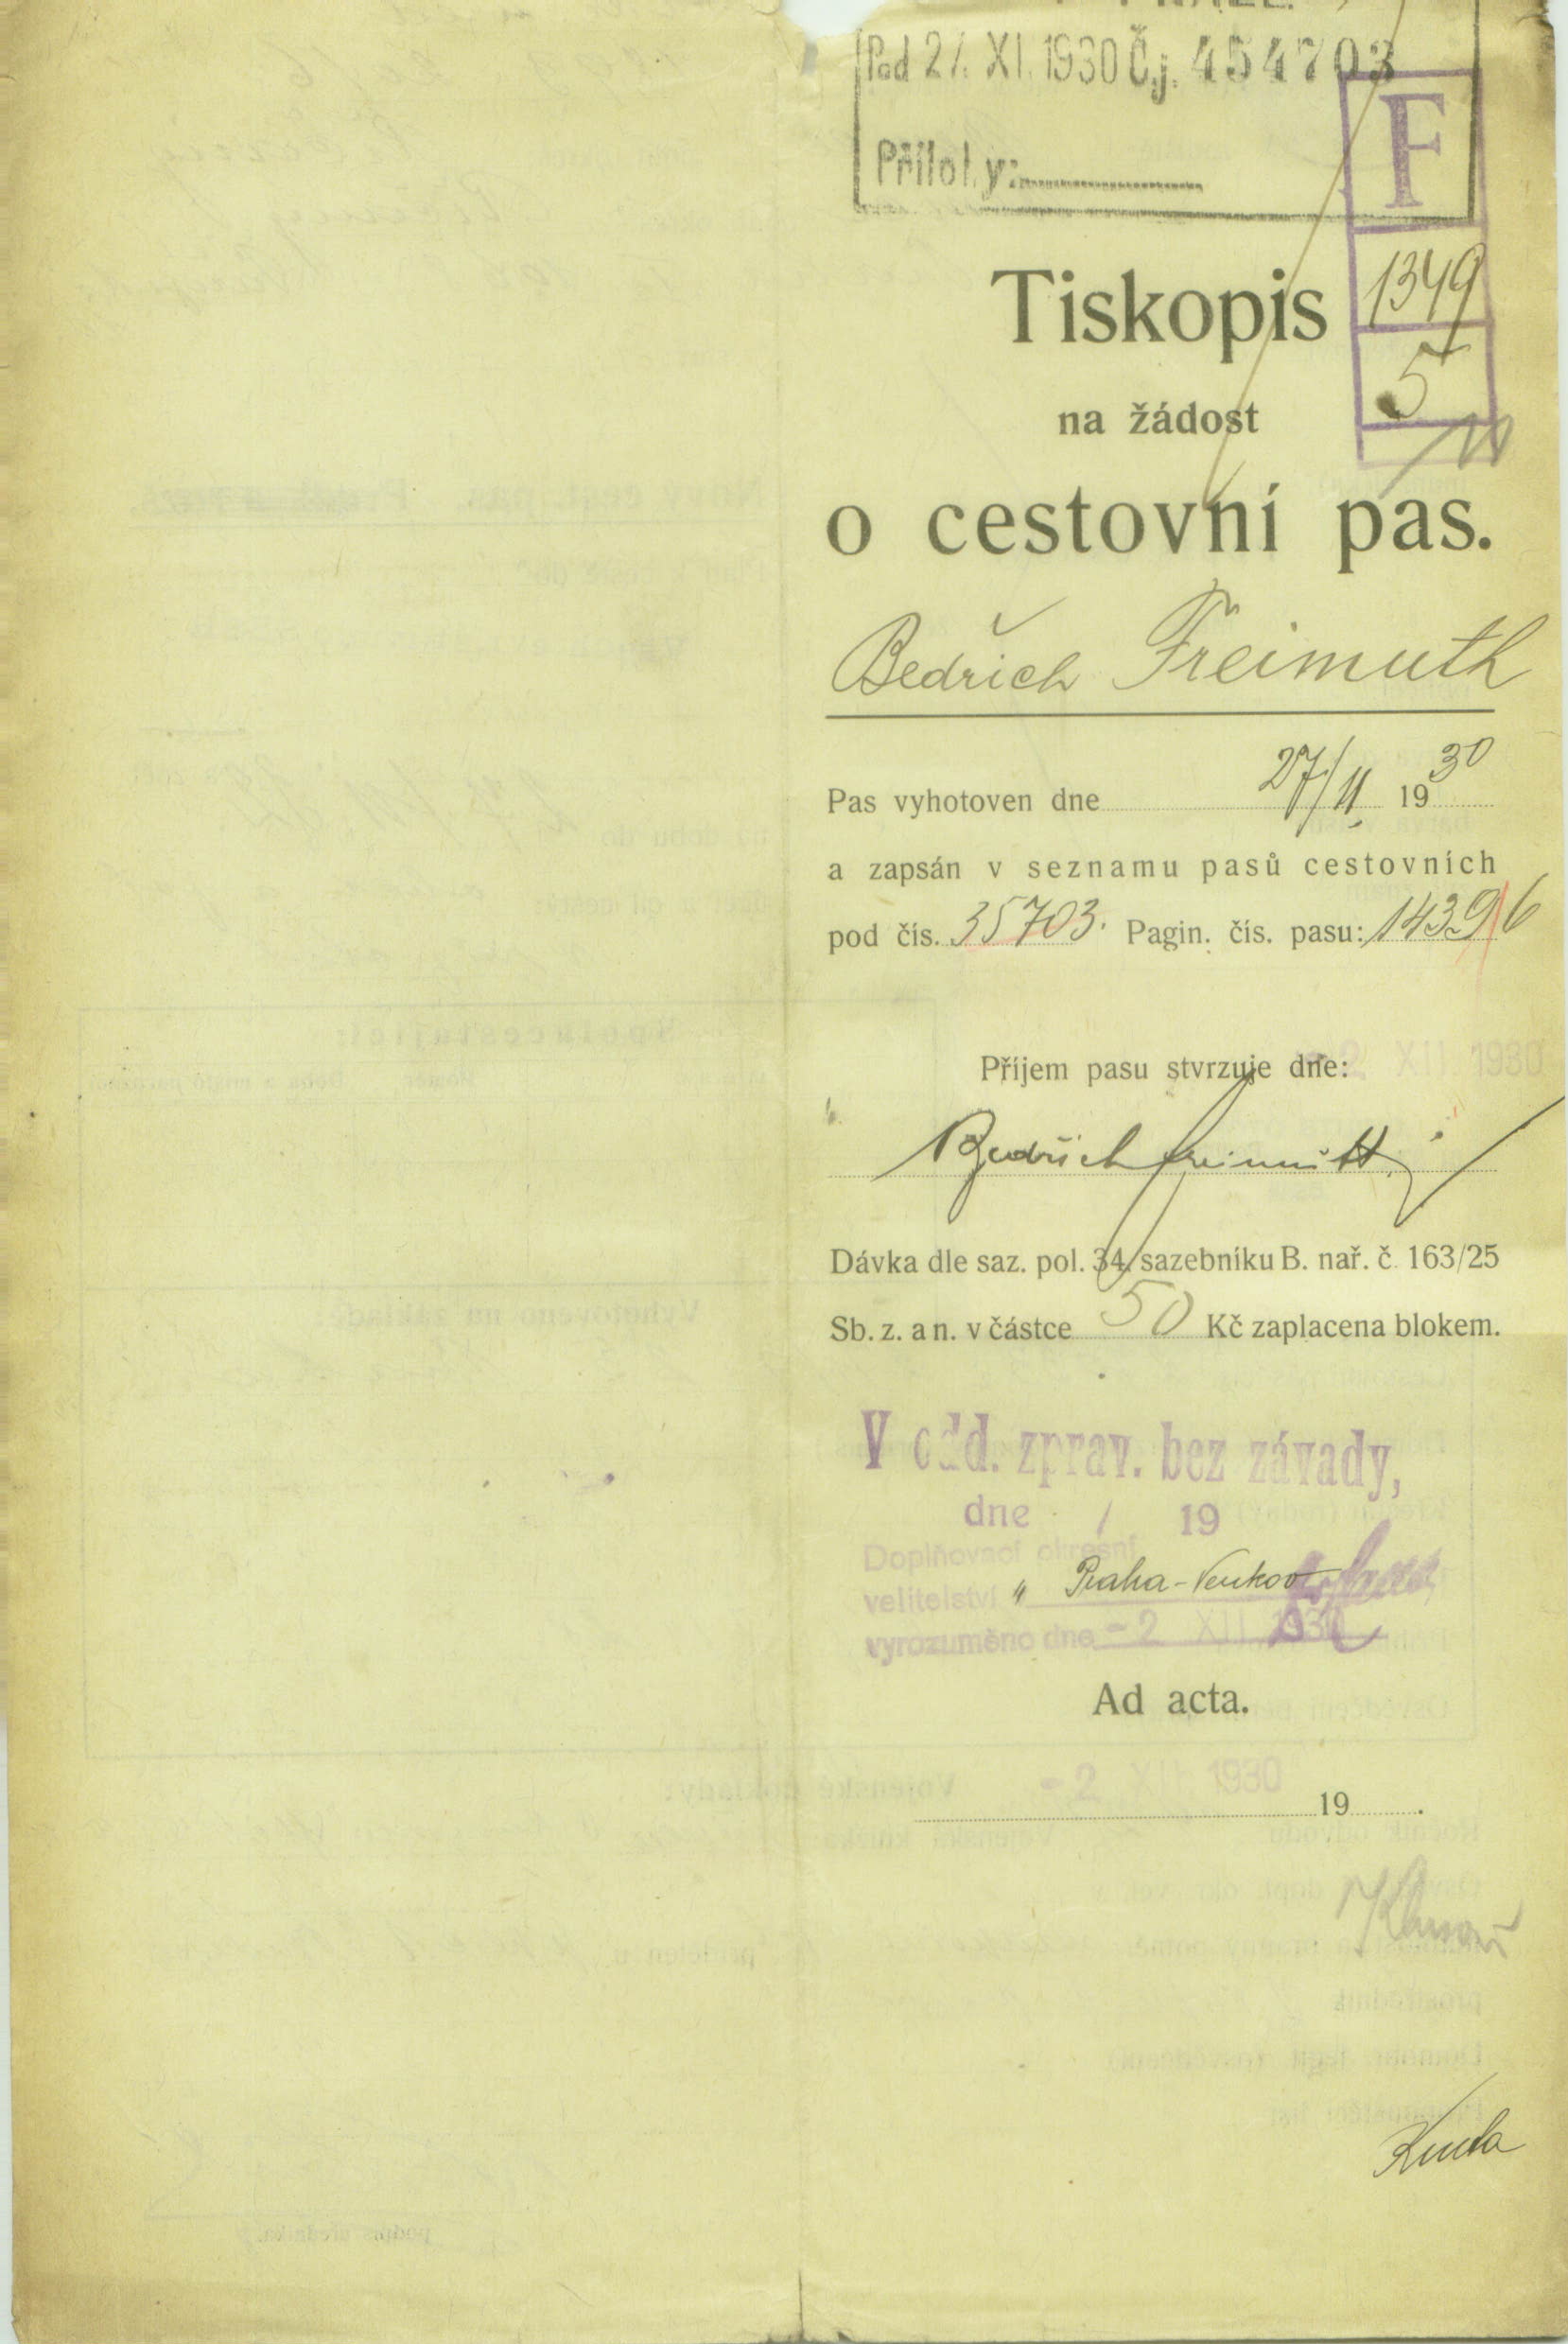 Pod 27. XI. 1930 Č.j. 454703
Přílohy:
F
1349
5
Tiskopis
na žádost
o cestovní pas.
Bedřich Freimuth
Pas vyhotoven dne 27/11. 1930
a zapsán v seznamu pasů cestovních
pod čís. 35703. Pagin. čís. pasu: 14396
Příjem pasu stvrzuje dne: -2 XII. 1930
Bedřich Freimuth
Dávka dle saz. pol. 34. sazebníku B. nař. č. 163/25
Sb. z. a n. v částce 50 Kč zaplacena blokem.
V odd. zprav. bez závady,
dne / 19
Doplňovací okresní
velitelství " Praha-Venkov
vyrozuměno dne -2 XII 1930
Ad acta.
-2 XII. 1930
19 .